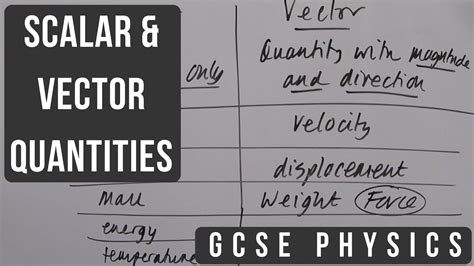 SCALAR &
VECTOR
QUANTITIES
Vector
only
Quantity with magnitude
and direction
velocity
displacement
Mass
Weight Force
energy
temperature
GCSE PHYSICS